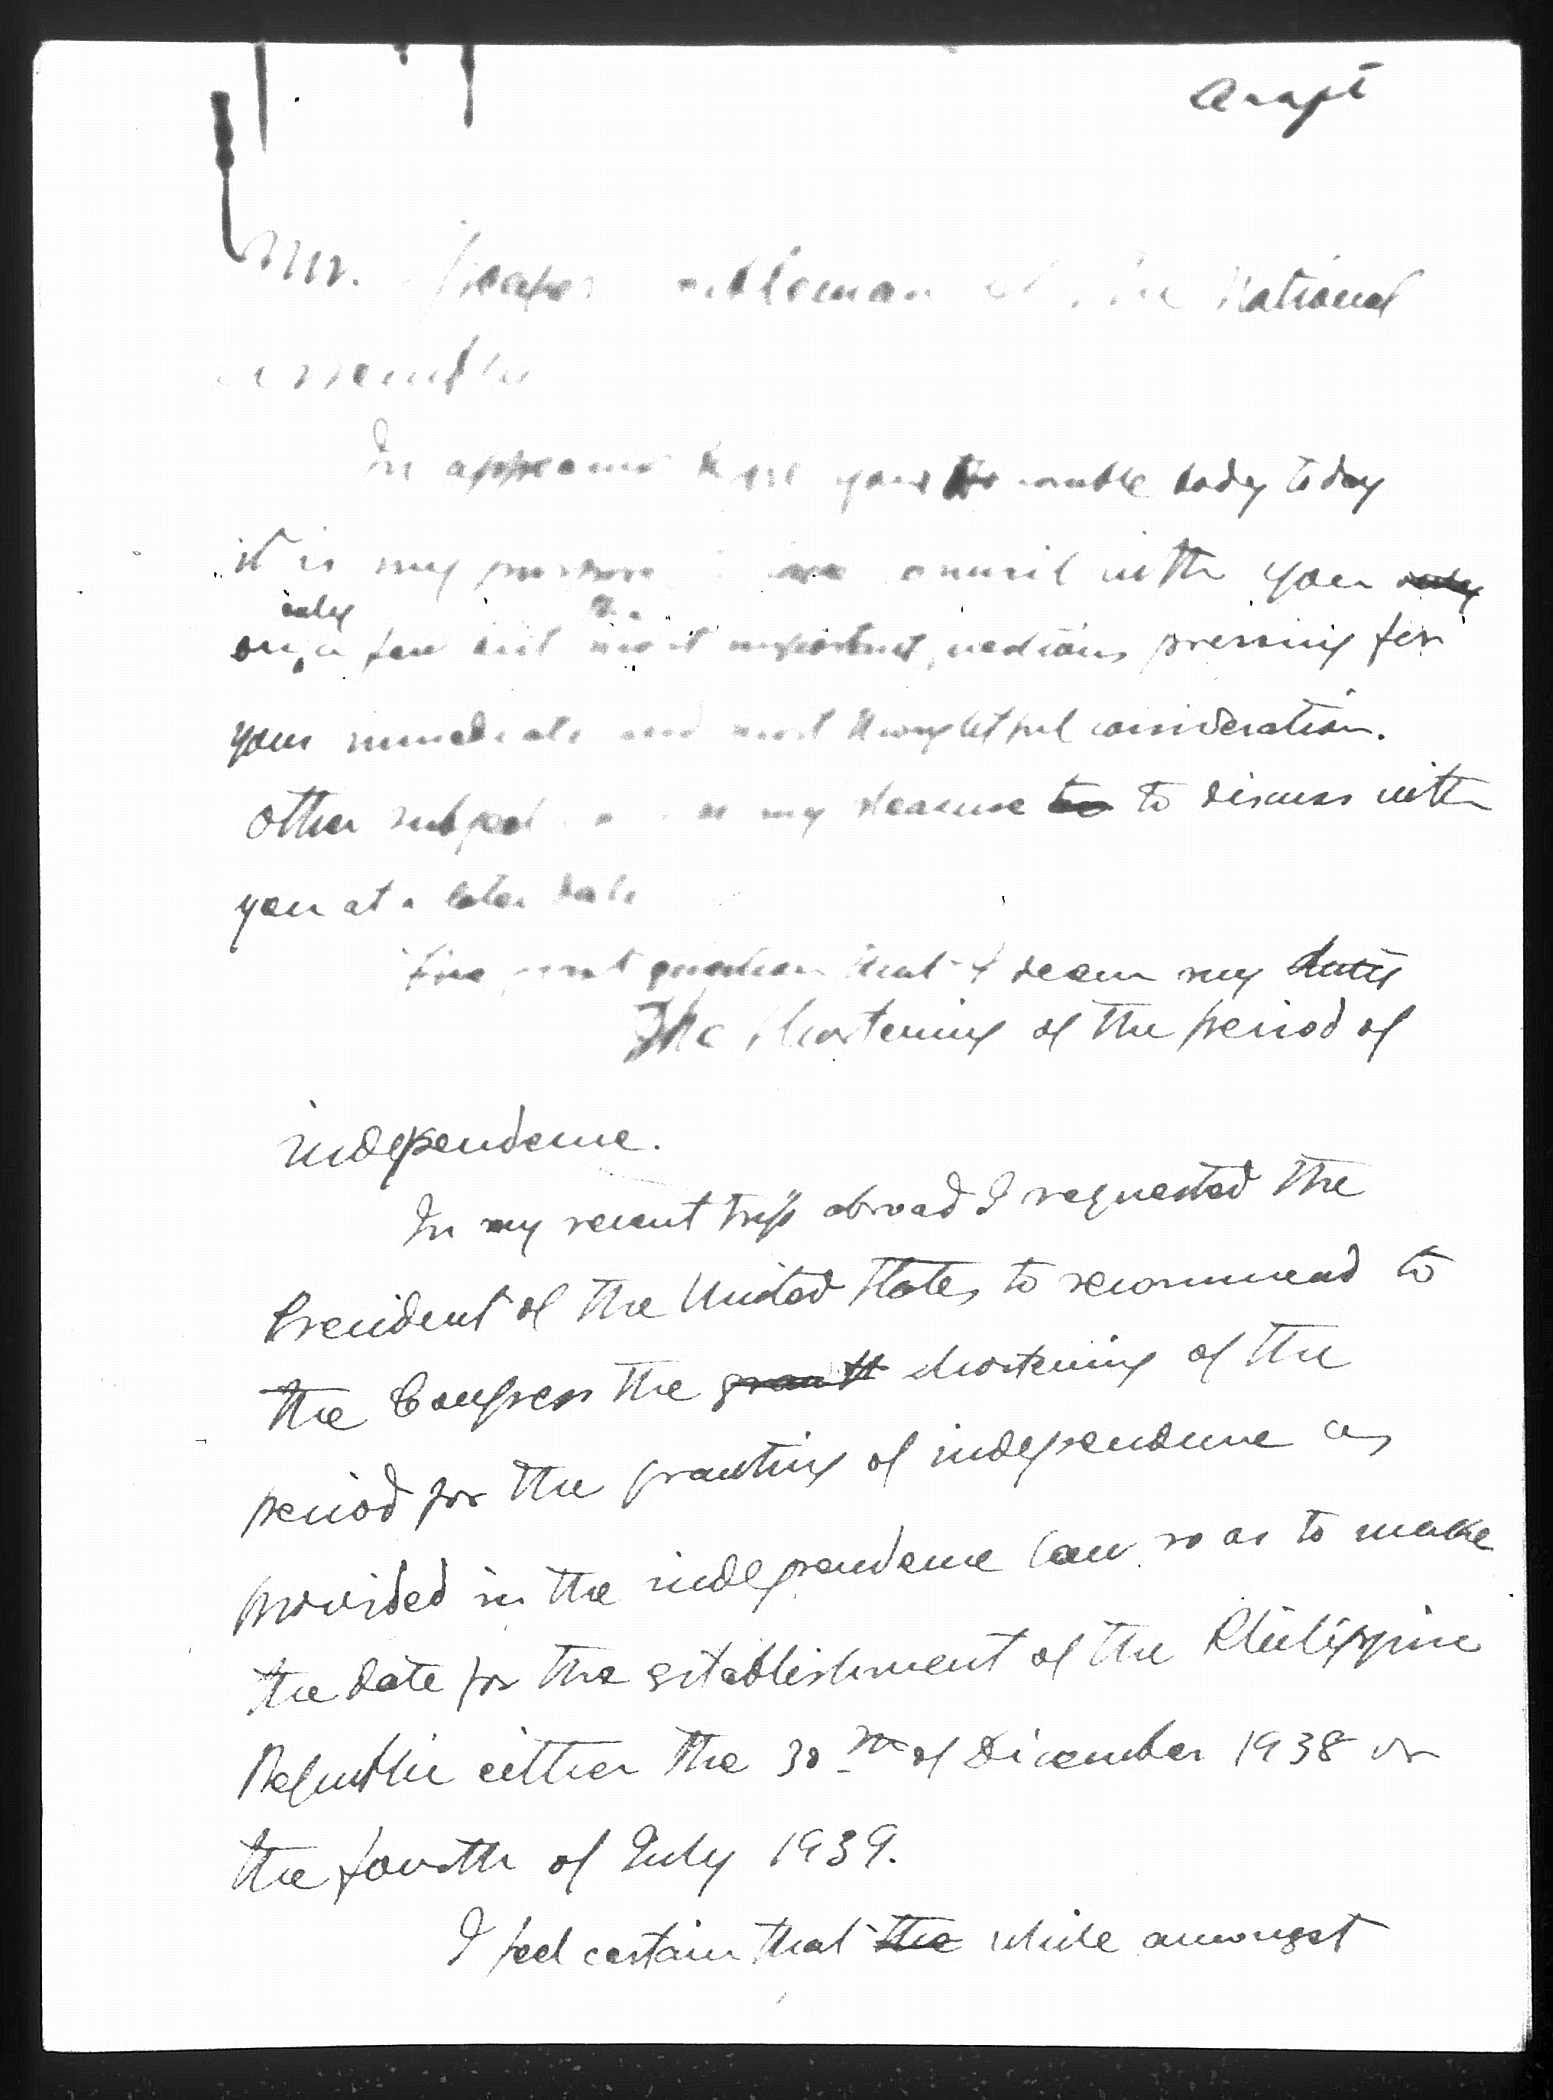 Draft
Mr. Speaker gentleman of the National
Assembly
In appearing before your Honorable body today
it is my purpose council with you only
only
on a few but most important questions pressing for
your immediate and most thoughtful consideration.
Other subject my pleasure to to discuss with
you at a later date
The first question that I deem my duty
The shortening of the period of
independence.
In my recent trip abroad I requested the
President of the United States to recommend to
the Congress the grantt shortening of the
period for the granting of independence as
provided in the independence law so as to make
the date for the establishment of the Philippine
Republic either the 30th of December 1938 or
the fourth of July 1939.
I feel certain that the while amongst